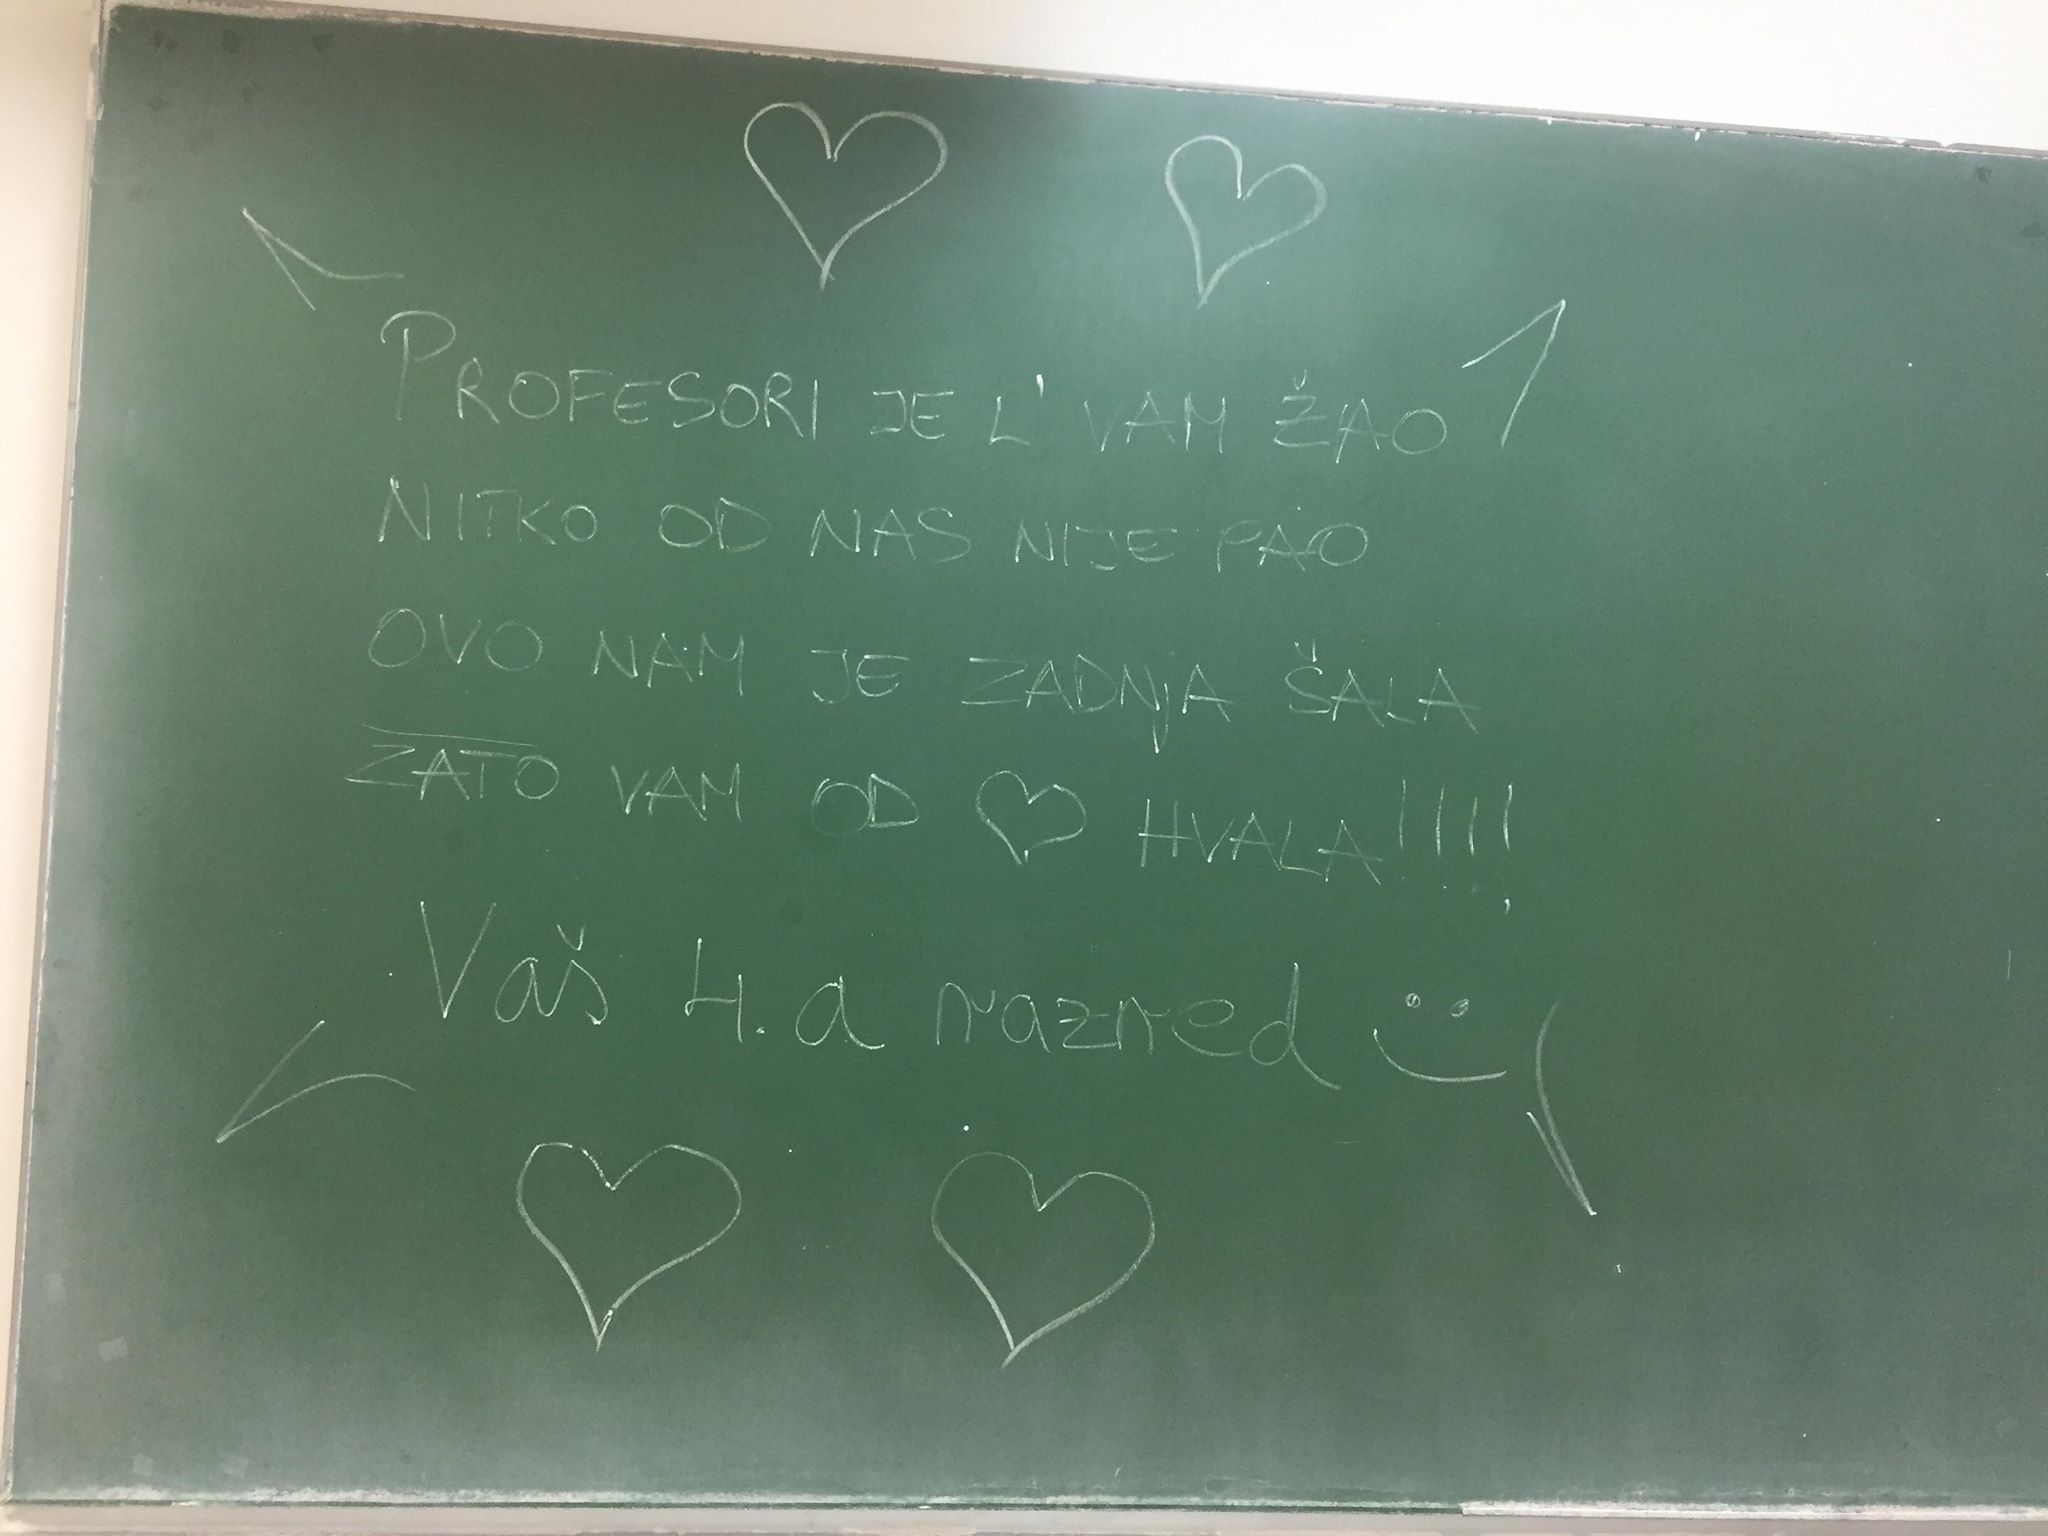 PROFESORI JE L' VAM ŽAO
NITKO OD NAS NIJE PAO
OVO NAM JE ZADNJA ŠALA
ZATO VAM OD ♡ HVALA!!!!
Vaš 4.a razred :)